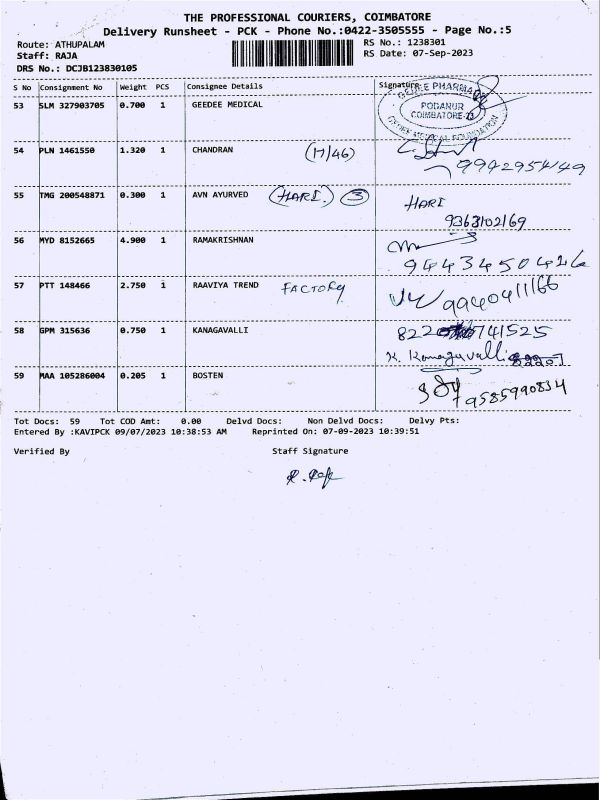 THE PROFESSIONAL COURIERS, COIMBATORE
Delivery Runsheet - PCK - Phone No.:0422-3505555 - Page No.:5
Route: ATHUPALAM
RS No.: 1238301
Staff: RAJA
RS Date: 07-Sep-2023
DRS No.: DCJB123830105
S No Consignment No Weight PCS Consignee Details Signature
53 SLM 327903705 0.700 1 GEEDEE MEDICAL
PODANUR
COIMBATORE-23
54 PLN 1461550 1.320 1 CHANDRAN (17/46)
9942954149
55 TMG 200548871 0.300 1 AVN AYURVED (HARI.) 3 HARI
9363102169
56 MYD 8152665 4.900 1 RAMAKRISHNAN
9443450426
57 PTT 148466 2.750 1 RAAVIYA TREND FACTORY 9940411166
58 GPM 315636 0.750 1 KANAGAVALLI 8220741525
K. Kanagavalli
59 MAA 105286004 0.205 1 BOSTEN
9585990834
Tot Docs: 59 Tot COD Amt: 0.00 Delvd Docs: Non Delvd Docs: Delvy Pts:
Entered By :KAVIPCK 09/07/2023 10:38:53 AM Reprinted On: 07-09-2023 10:39:51
Verified By Staff Signature